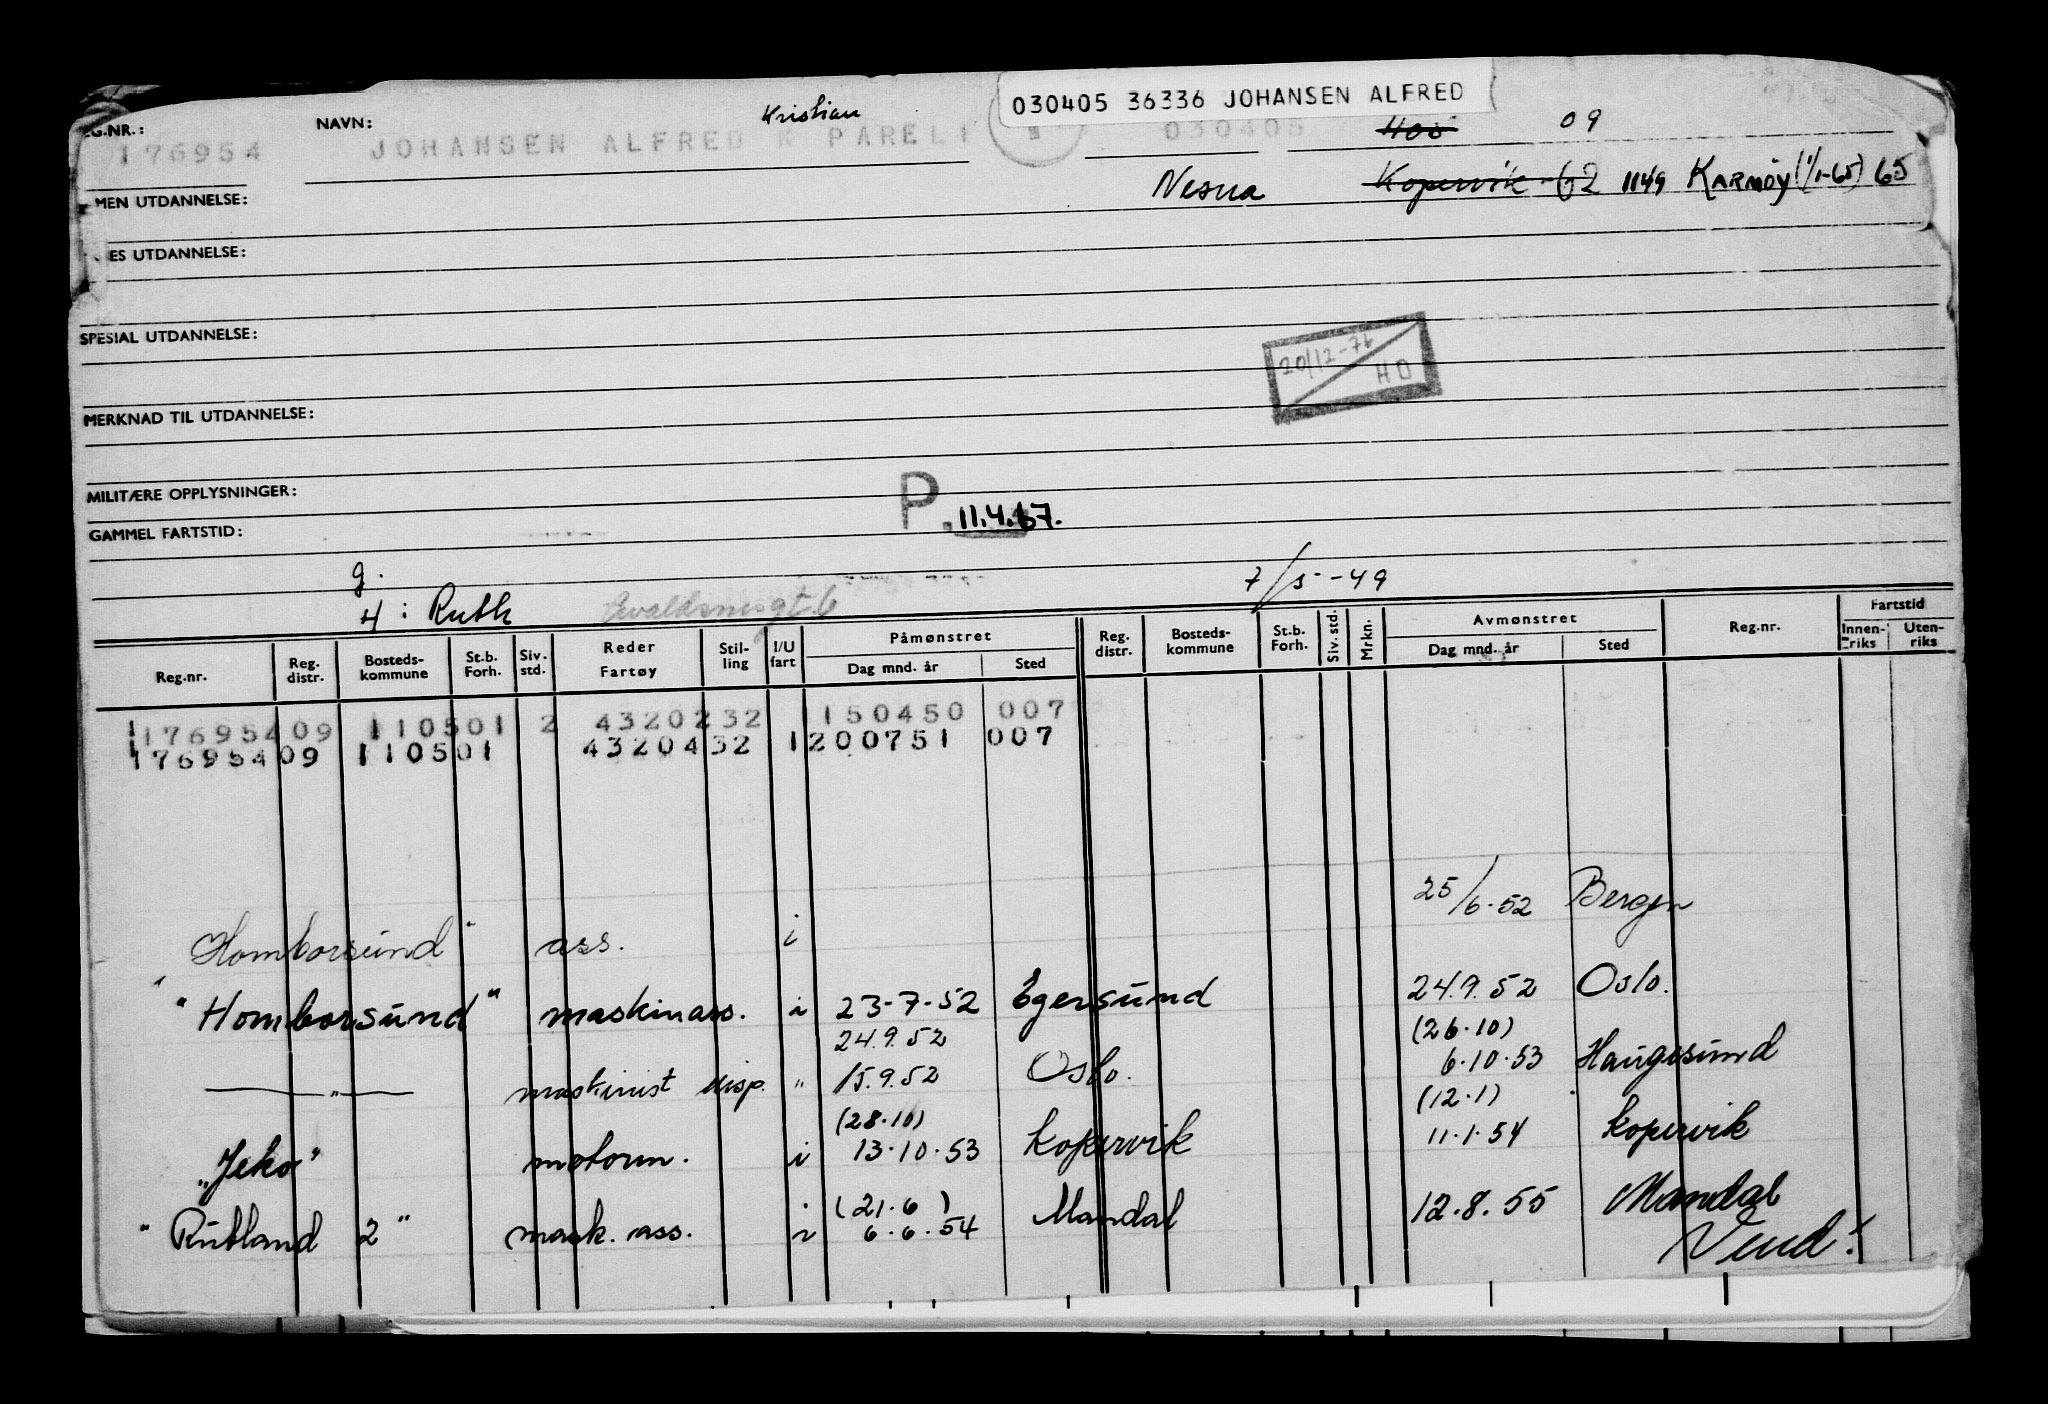 030405 36336 JOHANSEN ALFRED
Kristian
NAVN:
176954 JOHANSEN ALFRED K PARELI 1 030405 09
Nesna Kopervik 62 1149 KARMØY (1/1-65) 65
MEN UTDANNELSE:
ES UTDANNELSE:
SPESIAL UTDANNELSE:
20/12-76
HO
MERKNAD TIL UTDANNELSE:
MILITÆRE OPPLYSNINGER:
P. 11.4.67.
GAMMEL FARTSTID:
g.
4 : Ruth
7/5-49
Reg.nr. Reg. distr. Bosteds- kommune St.b. Forh. Siv. std. Reder Fartøy Stil- ling I/U fart Påmønstret Dag mnd. år Sted Reg. distr. Bosteds- kommune St.b. Forh. Siv. std. Mrkn. Avmønstret Dag mnd. år Sted Reg.nr. Fartstid Innen- riks Uten- riks
176954 09 110501 2 4320232 1150450 007
176954 09 110501 4320432 1200751 007
Homborsund" ass. i 25/6.52 Bergen
"Homborsund" maskinass. i 23-7-52 Egersund 24.9.52 Oslo.
24.9.52 (26.10)
—"— maskinist disp. " 15.9.52 Oslo. 6.10.53 Haugesund
(28.10) (12.1)
"Jeko" motorm. i 13.10.53 Kopervik 11.1.54 Kopervik
(21.6)
"Rutland 2" mask. ass. i 6.6.54 Mandal 12.8.55 Mandal
Vend!